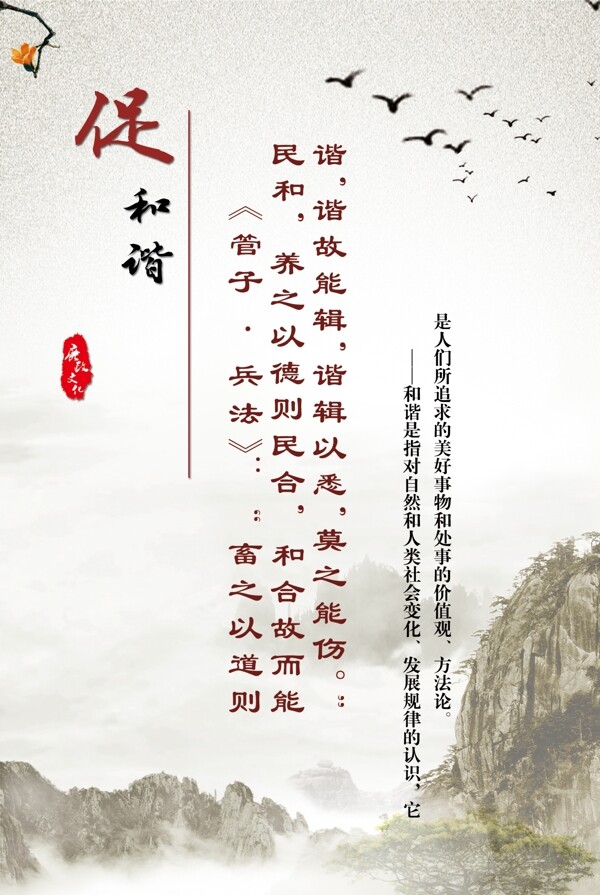 促
和谐
廉政
文化
《管子·兵法》：“畜之以道则
民和，养之以德则民合，和合故而能
谐，谐故能辑，谐辑以悉，莫之能伤。”
——和谐是指对自然和人类社会变化、发展规律的认识，它
是人们所追求的美好事物和处事的价值观、方法论。